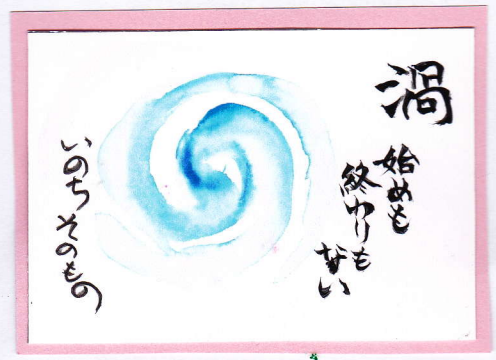 渦
始めも
終わりも
ない
いのちそのもの